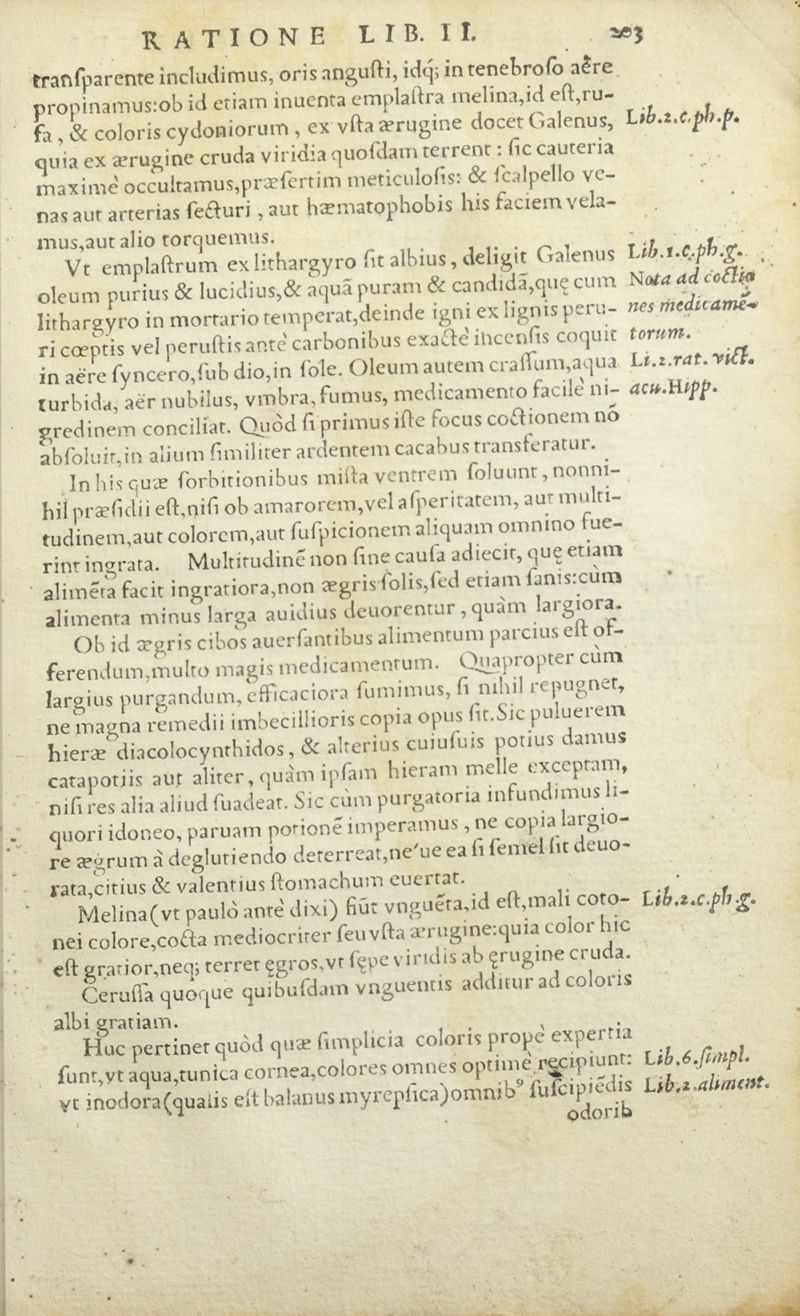 RATIONE LIB. II. 203
tranſparente includimus, oris anguſti, idq; in tenebroſo aëre
propinamus:ob id etiam inuenta emplaſtra melina,id eſt,ru-
fa, & coloris cydoniorum, ex vſta ærugine docet Galenus, Lib.2.c.ph.p.
quia ex ærugine cruda viridia quoſdam terrent: ſic cauteria
maximè occultamus,præſertim meticuloſis: & ſcalpello ve-
nas aut arterias ſecturi, aut hæmatophobis his faciem vela-
mus,aut alio torquemus.
Vt emplaſtrum ex lithargyro ſit albius, deligit Galenus Lib.1.c.ph.g.
oleum purius & lucidius,& aquã puram & candidã,quę cum Nota ad coctio
lithargyro in mortario temperat,deinde igni ex lignis peru- nes medicamē-
ri cœptis vel peruſtis antè carbonibus exactè incenſis coquit torum.
in aëre ſyncero,ſub dio,in ſole. Oleum autem craſſum,aqua Li.2.rat.vict.
turbida, aër nubilus, vmbra, fumus, medicamento facile ni- acu.Hipp.
gredinem conciliat. Quòd ſi primus iſte focus coctionem nõ
abſoluit,in alium ſimiliter ardentem cacabus transferatur.
In his quæ ſorbitionibus miſta ventrem ſoluunt, nonni-
hil præſidii eſt,niſi ob amarorem,vel aſperitatem, aut multi-
tudinem,aut colorem,aut ſuſpicionem aliquam omnino fue-
rint ingrata. Multitudinē non ſine cauſa adiecit, quę etiam
alimēta facit ingratiora,non ægris ſolis,ſed etiam ſanis:cum
alimenta minus larga auidius deuorentur, quàm largiora.
Ob id ægris cibos auerſantibus alimentum parcius eſt of-
ferendum,multo magis medicamentum. Quapropter cùm
largius purgandum, efficaciora ſumimus, ſi nihil repugnet,
ne magna remedii imbecillioris copia opus ſit.Sic puluerem
hieræ diacolocynthidos, & alterius cuiuſuis potius damus
catapotiis aut aliter, quàm ipſam hieram melle exceptam,
niſi res alia aliud ſuadeat. Sic cùm purgatoria infundimus li-
quori idoneo, paruam potionē imperamus, ne copia largio-
re ægrum à deglutiendo deterreat,ne'ue ea ſi ſemel ſit deuo-
rata,citius & valentius ſtomachum euertat.
Melina(vt paulò antè dixi) fiūt vnguēta,id eſt,mali coto- Lib.2.c.ph.g.
nei colore,cocta mediocriter ſeu vſta ærugine:quia color hic
eſt gratior,neq; terret ęgros,vt ſępe viridis ab ęrugine cruda.
Ceruſſa quoque quibuſdam vnguentis additur ad coloris
albi gratiam.
Huc pertinet quòd quæ ſimplicia coloris propè expertia
ſunt,vt aqua,tunica cornea,colores omnes optimè recipiunt: Lib.6.ſimpl.
vt inodora(qualis eſt balanus myrepſica)omnibꝰ ſuſcipiēdis Lib.2.aliment.
odorib